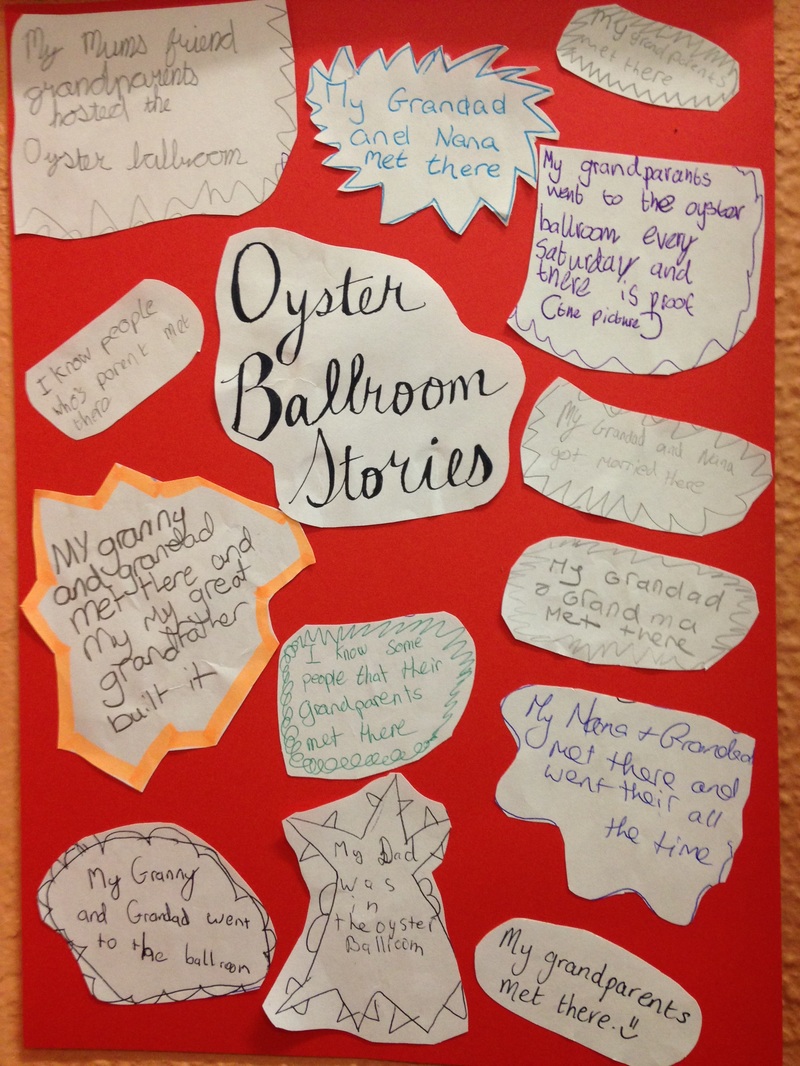 My Mums friend
grandparents
hosted the
Oyster ballroom
My Grandad
and Nana
met there
My grandparents
met there
My grandparents
went to the oyster
ballroom every
Saturday and
there is proof
(the picture)
Oyster
Ballroom
Stories
I know people
who's parent met
there
My Grandad and Nana
got married there
My granny
and grandad
met there and
my my great
grandfather
built it
My Grandad
& Grandma
Met there
I know some
people that their
grandparents
met there
My Nana + Grandad
met there and
went their all
the time
My Granny
and Grandad went
to the ballroom
My Dad
was
in
the oyster
Ballroom
My grandparents
met there.